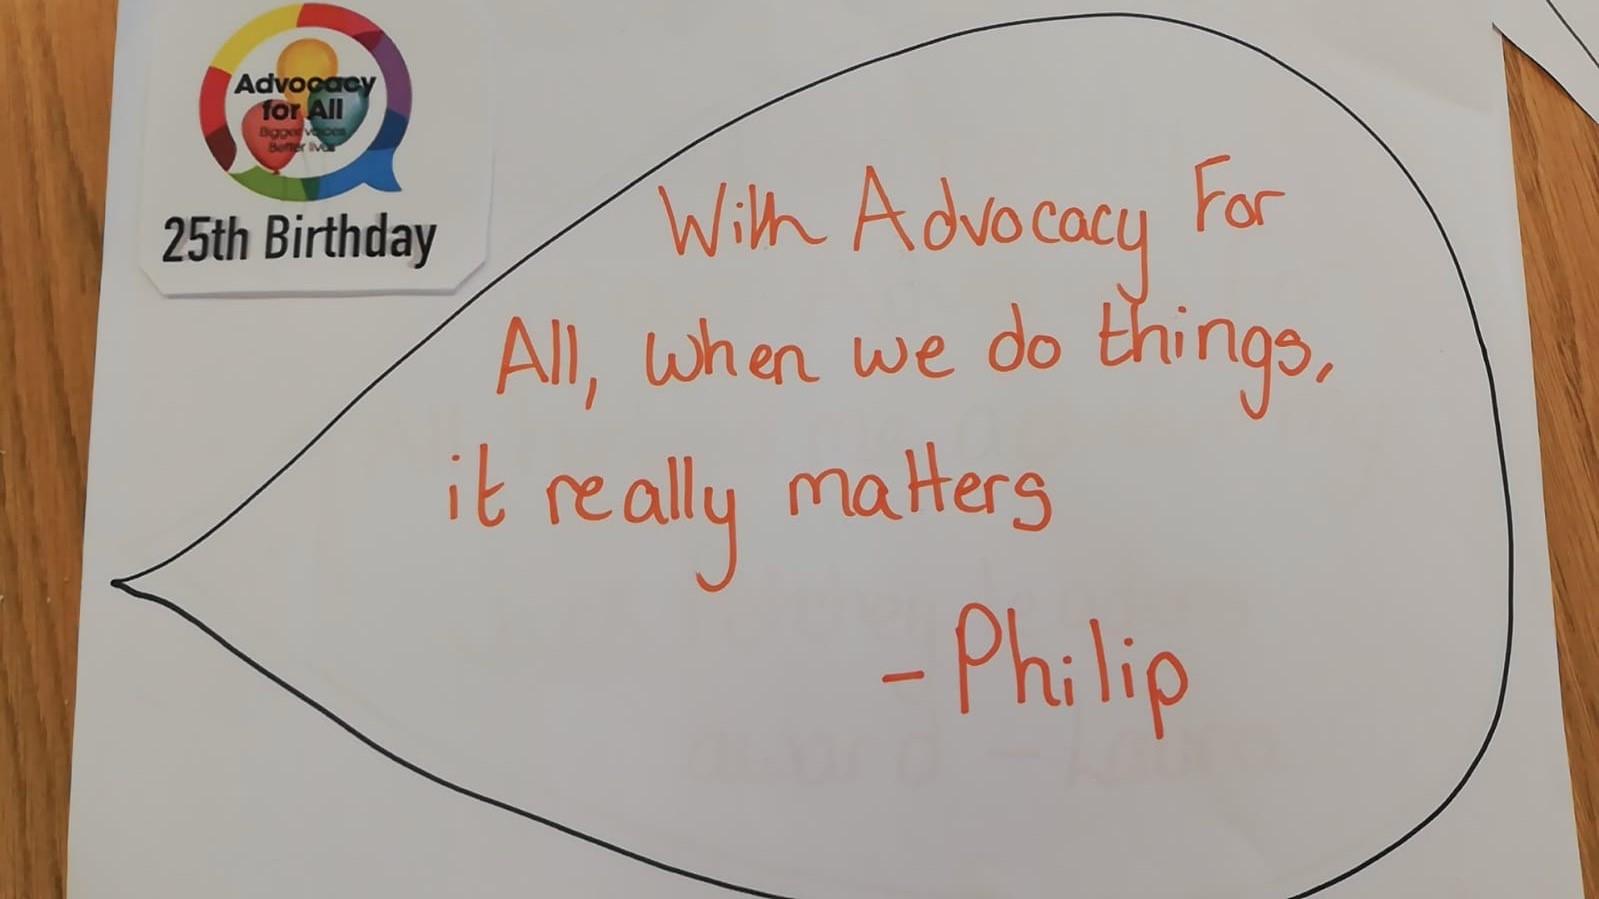 Advocacy
for All
Bigger voices
Better lives
25th Birthday
With Advocacy For
All, when we do things,
it really matters
- Philip